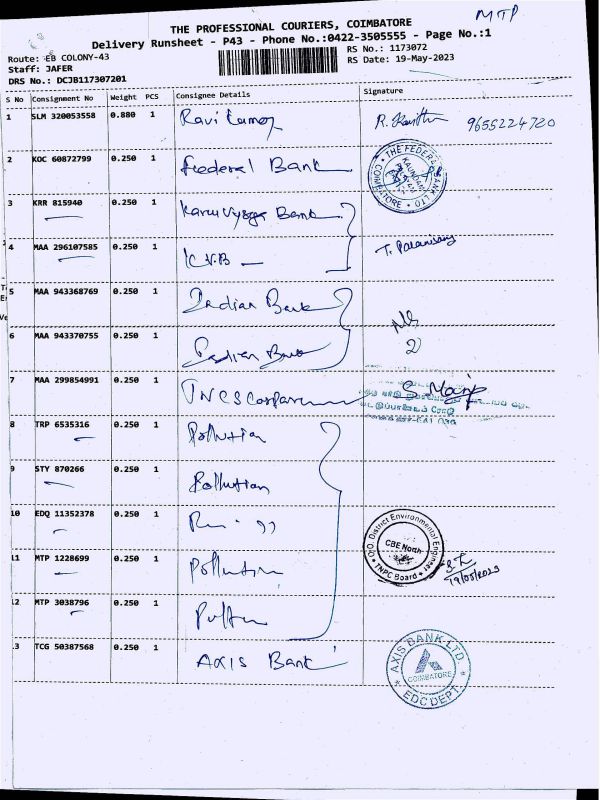 MTP
THE PROFESSIONAL COURIERS, COIMBATORE
Delivery Runsheet - P43 - Phone No.:0422-3505555 - Page No.:1
Route: EB COLONY-43
RS No.: 1173072
Staff: JAFER
RS Date: 19-May-2023
DRS No.: DCJB117307201
S No Consignment No Weight PCS Consignee Details Signature
1 SLM 320053558 0.880 1 Ravi Kumar R. 9655224720
2 KOC 60872799 0.250 1 Federal Bank THE FEDERAL BANK LTD COIMBATORE
3 KRR 815940 0.250 1 Karur Vysya Bank
4 MAA 296107585 0.250 1 K.V.B T. Palanisamy
5 MAA 943368769 0.250 1 Indian Bank
6 MAA 943370755 0.250 1 Indian Bank
7 MAA 299854991 0.250 1 TNCS
8 TRP 6535316 0.250 1 Pollution
9 STY 870266 0.250 1 Pollution
10 EDQ 11352378 0.250 1
11 MTP 1228699 0.250 1 Pollution O/O. District Environmental Engineer CBE North TNPC Board 19/05/2023
12 MTP 3038796 0.250 1
13 TCG 50387568 0.250 1 AXIS Bank AXIS BANK LTD. COIMBATORE EDC DEPT.